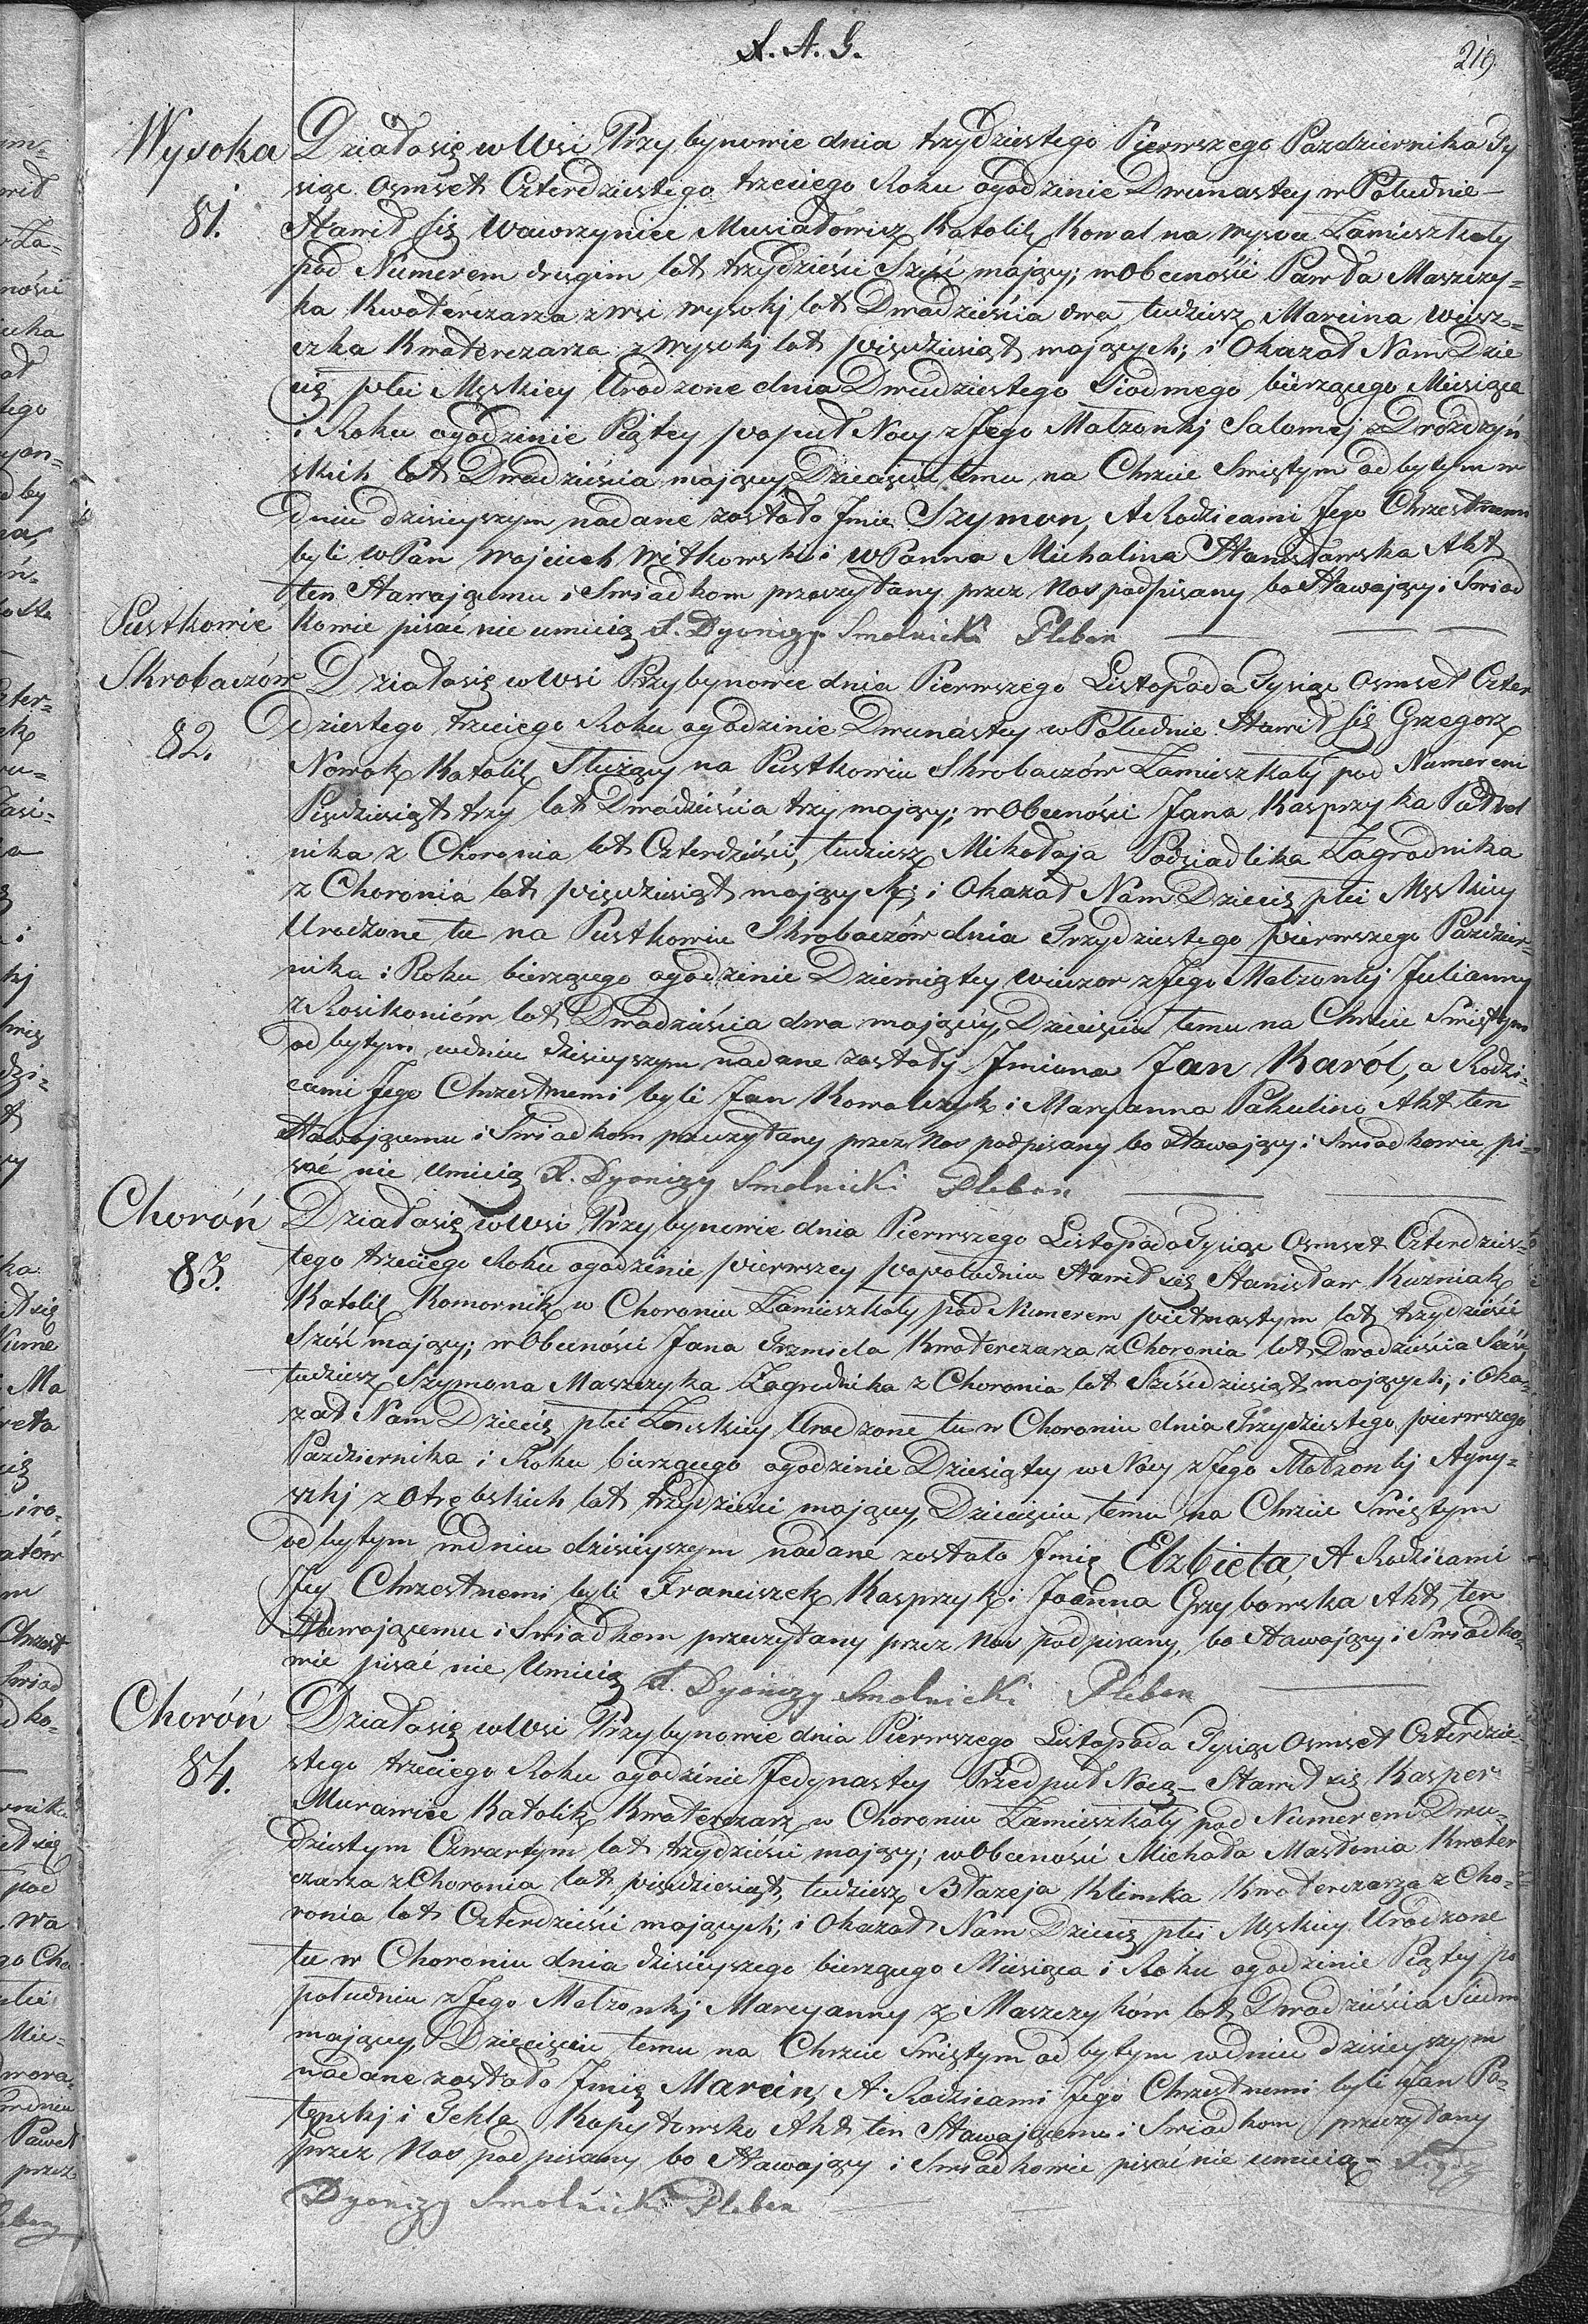 X. A. G.
219
Wysoka
81.
Działo się w Wsi Przybynowie dnia trzydziestego Pierwszego Pazdziernika Ty
siąc Osmset Czterdziestego trzeciego Roku ogodzinie Dwunastey w Południe –
Stawił się Wawrzyniec Musiałowicz Katolik Kowal na Wysoce Zamieszkały
pod Numerem drugim lat trzydzieści Sześć maiący; w Obecności Pawła Maszczy-
ka Kwaterczarza z wsi Wysokj lat Dwadzieścia dwa tudziesz Marcina Weisz-
czka Kwaterczarza z Wysokj lat pięcdziesiąt maiących; i Okazał Nam Dzie
cię płci Męskiey Urodzone dnia Dwudziestego Siodmego bierzącego Miesiąca
i Roku ogodzinie Piątey popuł Nocy z Jego Małzonkj Salomej z Drożdżyń-
skich lat Dwadzieścia maiącey, Dziecięciu temu na Chrzcie Swiętym odbytym w
dniu dzisieyszym nadane zostało Jmie Szymon, A Rodzicami Jego Chrzestnemi
byli W Pan Wojciech Witkowski i W Panna Michalina Stanisławska Akt
ten Stawaiącemu i Swiadkom przeczytany przez Nas podpisany bo Stawaiący i Swiad
kowie pisać nie umieią X. Dyonizy Smolnicki Pleban
Pustkowie
Skrobaczów
82.
Działo się w Wsi Przybynowie dnia Pierwszego Listopada Tysiąc Osmset Czter
dziestego trzeciego Roku ogodzinie Dwunastey w Południe Stawił się Grzegorz
Nowak Katolik Służący na Pustkowiu Skrobaczów Zamieszkały pod Numerem
Pięcdziesiąt trzy lat Dwadzieścia trzy maiący; w Obecności Jana Kasprzyka Pułrol
nika z Choronia lat Czterdzieści, tudziesz Mikołaja Podsiadlika Zagrodnika
z Choronia lat pięcdziesiąt maiących; i Okazał Nam Dziecię płci Męskiey
Urodzone tu na Pustkowiu Skrobaczów dnia Trzydziestego pierwszego Pazdzier-
nika i Roku bierzącego ogodzinie Dziewiątey wieczor z Jego Małzonkj Julianny
z Kosikoniów lat Dwadzieścia dwa maiącey, Dziecięciu temu na Chrzcie Swiętym
odbytym wdniu dzisieyszym nadane zostały Jmiona Jan Karól, a Rodzi-
cami Jego Chrzestnemi byli Jan Kowalczyk i Maryanna Pakulino Akt ten
Stawaiącemu i Swiadkom przeczytany przez Nas podpisany bo Stawaiący i Swiadkowie pi-
sać nie Umieią X. Dyonizy Smolnicki Pleban
Choróń
83.
Działo się w Wsi Przybynowie dnia Pierwszego Listopada Tysiąc Osmset Czterdzies-
tego trzeciego Roku ogodzinie pierwszey popołudniu Stawił się Stanisław Kuzniak
Katolik Komornik w Choroniu Zamieszkały pod Numerem pietnastym lat trzydzieści
Sześć maiący; w Obecności Jana Trzmiela Kwaterczarza z Choronia lat Dwadzieścia Sześć
tudziesz Szymona Maszczyka Zagrodnika z Choronia lat Sześcdziesiąt maiących; i Oka-
zał Nam Dziecię płci Zenskiey Urodzone tu w Choroniu dnia Trzydziestego pierwszego
Pazdziernika i Roku bierzącego ogodzinie Dziesiątey w Nocy z Jego Małzonkj Agny-
szkj z Otrębskich lat trzydzieści maiącey, Dziecięciu temu na Chrzcie Swiętym
odbytym wdniu dzisieyszym nadane zostało Jmię Elzbieta, A Rodzicami
Jey Chrzestnemi byli Franciszek Kasprzyk i Joanna Grzybowska Akt ten
Stawaiącemu i Swiadkom przeczytany przez Nas podpisany, bo Stawaiący i Swiadko-
wie pisać nie Umieią X. Dyonizy Smolnicki Pleban
Choróń
84.
Działo się w Wsi Przybynowie dnia Pierwszego Listopada Tysiąc Osmset Czterdzie-
stego trzeciego Roku ogodzinie Jedynastey Przedpuł Nocą – Stawił się Kasper
Murawiec Katolik Kwaterczarz w Choroniu Zamieszkały pod Numerem Dwu-
dziestym Czwartym lat trzydzieści maiący; w Obecności Michała Masłonia Kwater
czarza z Choronia lat pięcdziesiąt, tudziesz Błazeja Klimka Kwaterczarza z Cho-
ronia lat Czterdzieści maiących; i Okazał Nam Dziecię płci Męskiey Urodzone
tu w Choroniu dnia dzisieyszego bierzącego Miesiąca i Roku ogodzinie Piątey po
południu z Jego Małzonkj Maryanny z Maszczyków lat Dwadzieścia Siedm
maiącey, Dziecięciu temu na Chrzcie Swiętym odbytym wdniu dzisieyszym
nadane zostało Jmię Marcin, A Rodzicami Jego Chrzestnemi byli Jan Po-
tępskj i Tekla Kopytowska Akt ten Stawaiącemu i Swiadkom przeczytany
przez Nas podpisany bo Stawaiący i Swiadkowie pisać nie umieią –
Dyonizy Smolnicki Pleban